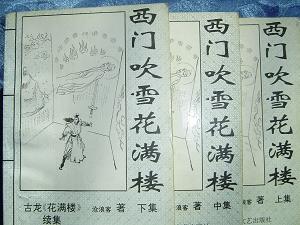 西门吹雪花满楼
古龙《花满楼》
续集
沧浪客 著 下集
西门吹雪花满楼
沧浪客 著 中集
西门吹雪花满楼
沧浪客 著 上集
文艺出版社